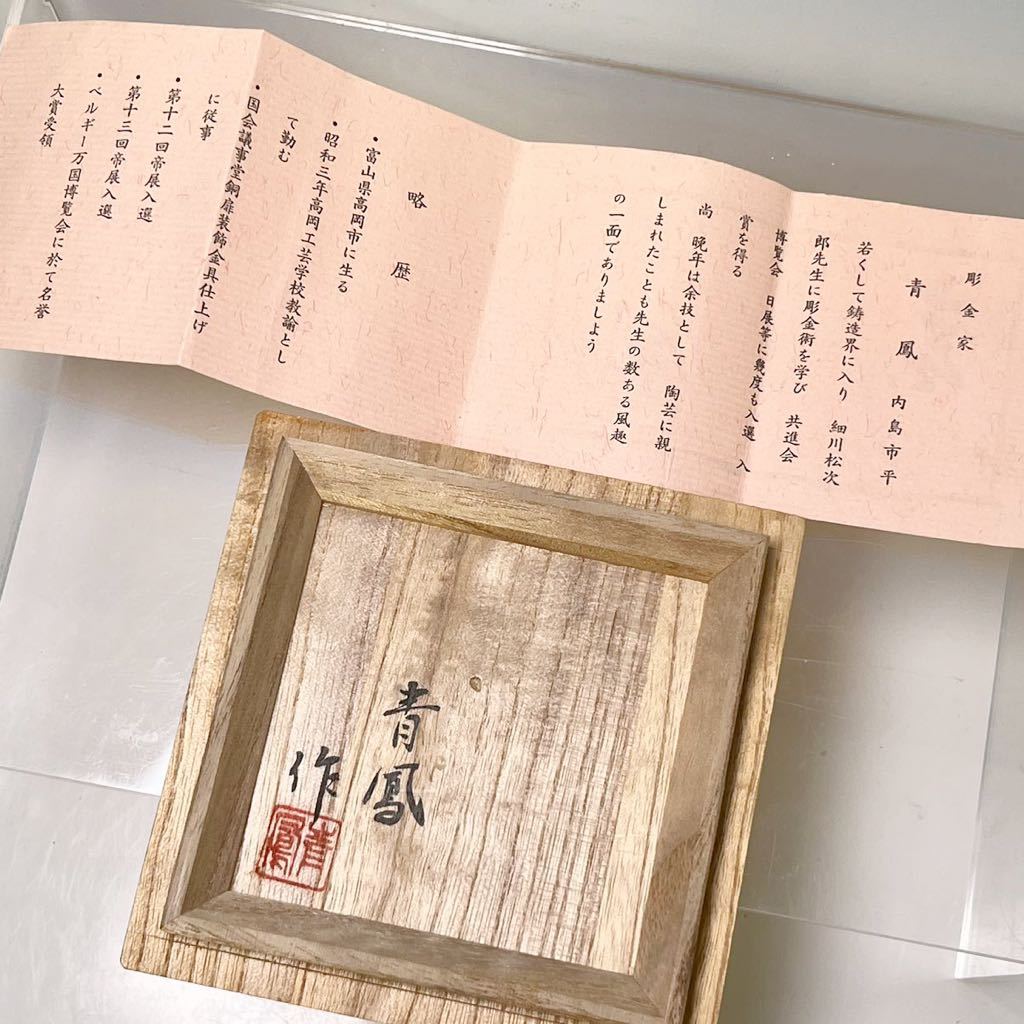 彫金家
青鳳 内島市平
若くして鋳造界に入り 細川松次
郎先生に彫金術を学び 共進会
博覧会 日展等に幾度も入選 入
賞を得る
尚 晩年は余技として 陶芸に親
しまれたことも先生の数ある風趣
の一面でありましよう
略歴
・富山県高岡市に生る
・昭和三年高岡工芸学校教諭とし
て勤む
・国会議事堂銅扉装飾金具仕上げ
に従事
・第十二回帝展入選
・第十三回帝展入選
・ベルギー万国博覧会に於て名誉
大賞受領
青鳳
作
青鳳